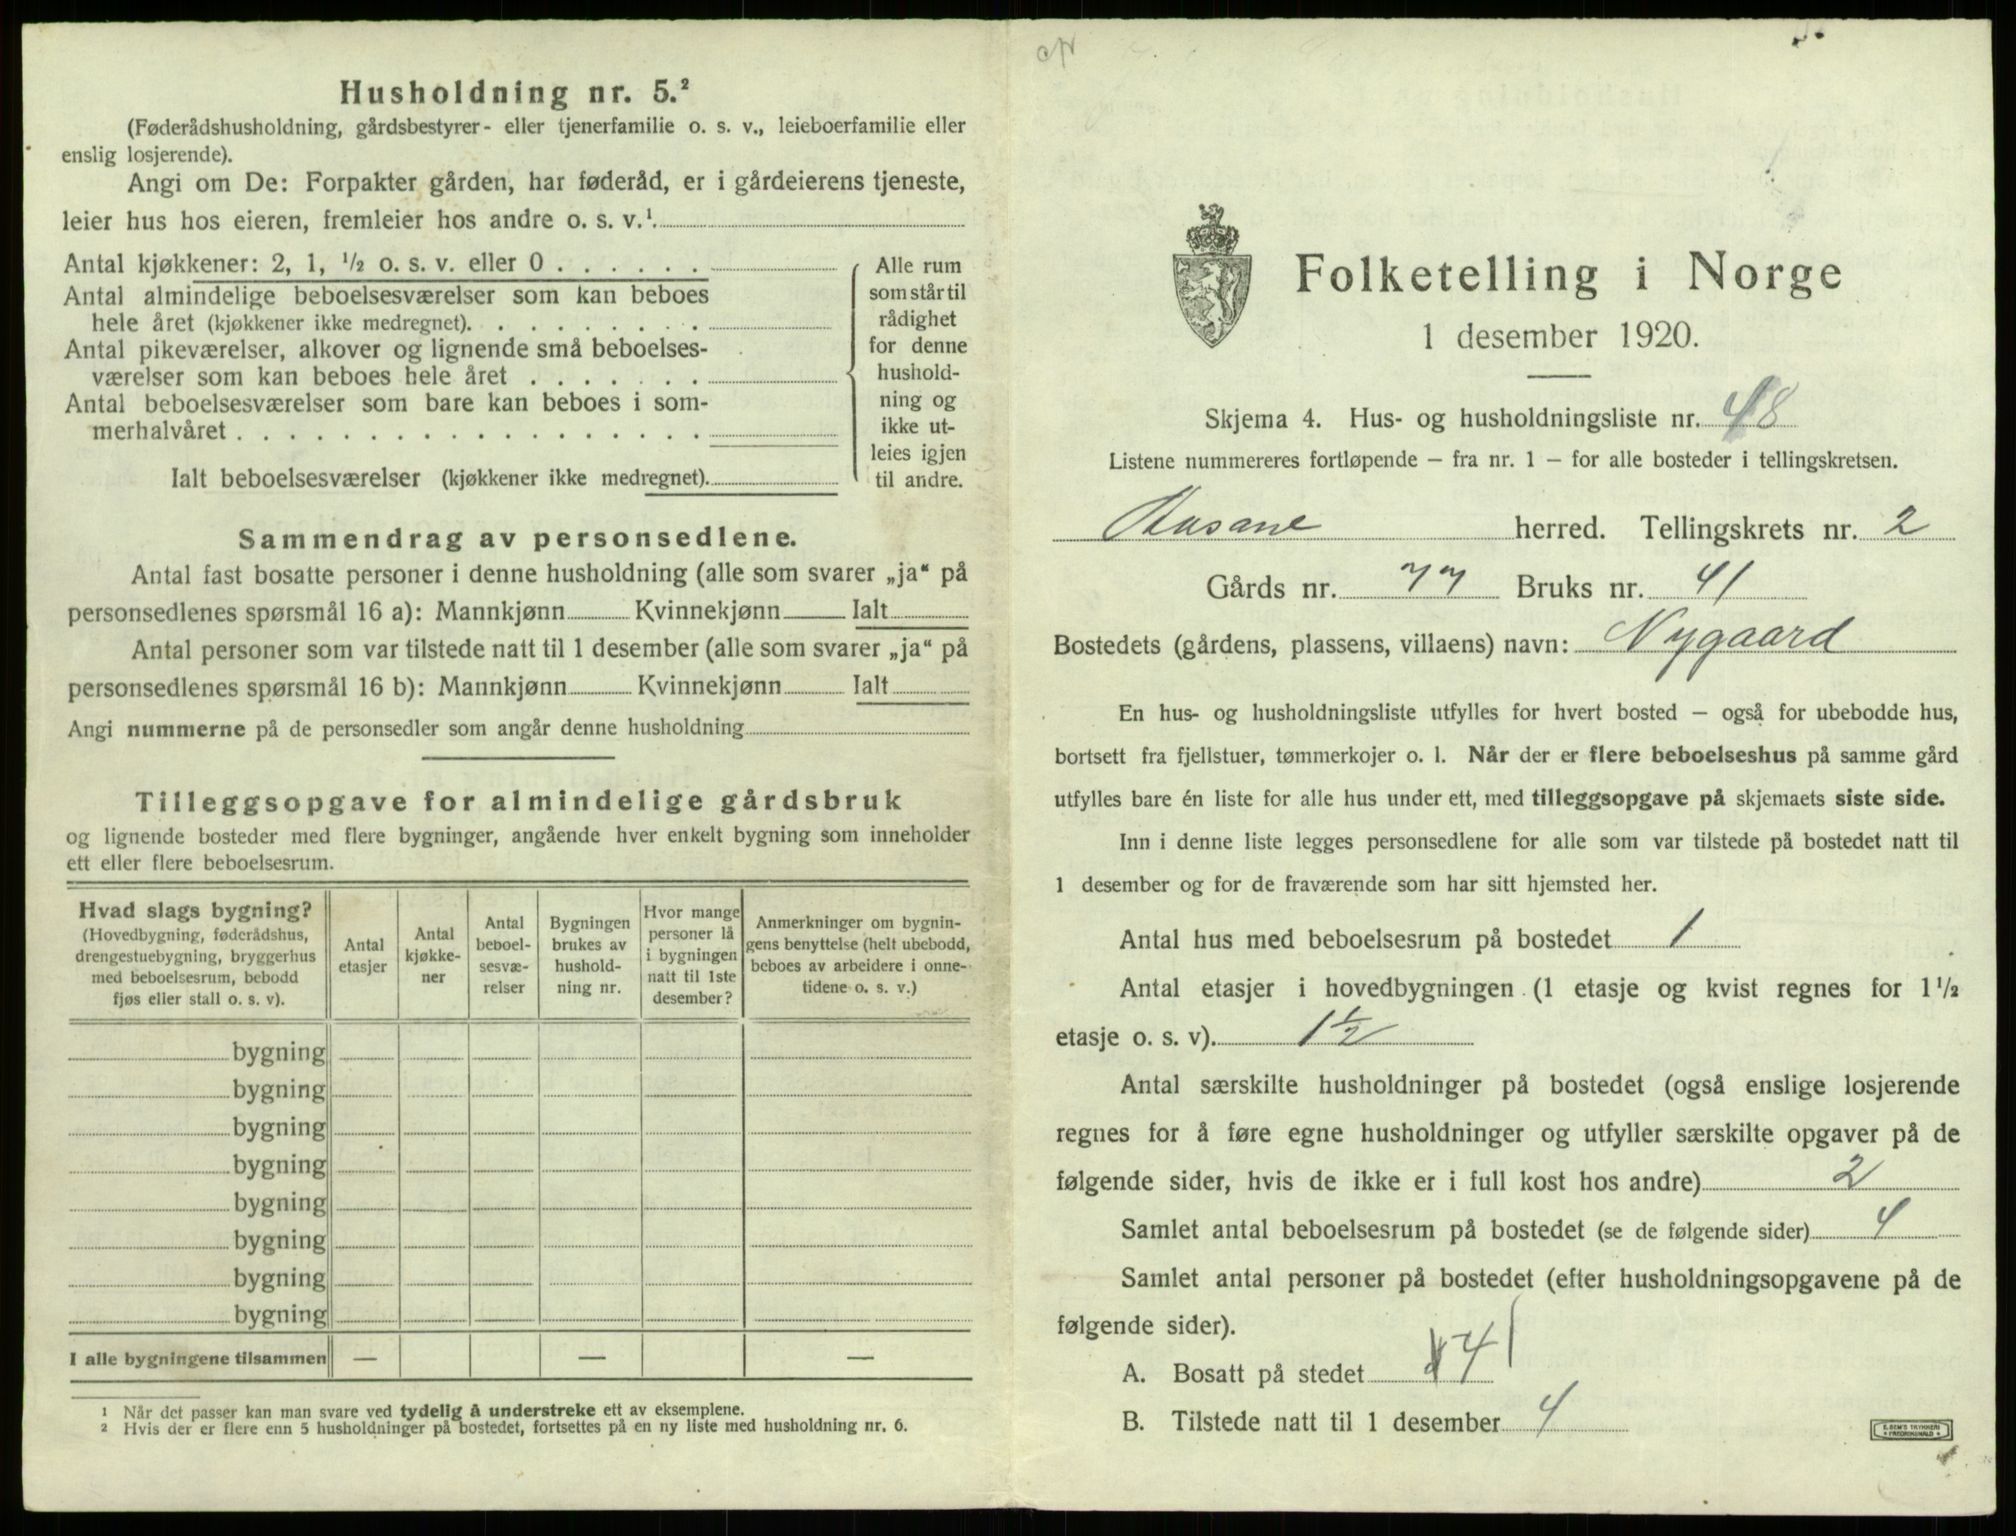 Husholdning nr. 5.²
(Føderådshusholdning, gårdsbestyrer- eller tjenerfamilie o. s. v., leieboerfamilie eller
enslig losjerende).
Angi om De: Forpakter gården, har føderåd, er i gårdeierens tjeneste,
leier hus hos eieren, fremleier hos andre o. s. v.¹
Antal kjøkkener: 2, 1, ½ o. s. v. eller 0
Antal almindelige beboelsesværelser som kan beboes
hele året (kjøkkener ikke medregnet)
Antal pikeværelser, alkover og lignende små beboelses-
værelser som kan beboes hele året
Antal beboelsesværelser som bare kan beboes i som-
merhalvåret
Ialt beboelsesværelser (kjøkkener ikke medregnet)
Alle rum
som står til
rådighet
for denne
hushold-
ning og
ikke ut-
leies igjen
til andre.
Sammendrag av personsedlene.
Antal fast bosatte personer i denne husholdning (alle som svarer „ja“ på
personsedlenes spørsmål 16 a): Mannkjønn Kvinnekjønn Ialt
Antal personer som var tilstede natt til 1 desember (alle som svarer „ja“ på
personsedlenes spørsmål 16 b): Mannkjønn Kvinnekjønn Ialt
Angi nummerne på de personsedler som angår denne husholdning
Tilleggsopgave for almindelige gårdsbruk
og lignende bosteder med flere bygninger, angående hver enkelt bygning som inneholder
ett eller flere beboelsesrum.
Hvad slags bygning?
(Hovedbygning, føderådshus,
drengestuebygning, bryggerhus
med beboelsesrum, bebodd
fjøs eller stall o. s. v).
Antal
etasjer
Antal
kjøkke-
ner
Antal
beboel-
sesvæ-
relser
Bygningen
brukes av
hushold-
ning nr.
Hvor mange
personer lå
i bygningen
natt til 1ste
desember?
Anmerkninger om bygnin-
gens benyttelse (helt ubebodd,
beboes av arbeidere i onne-
tidene o. s. v.)
bygning
bygning
bygning
bygning
bygning
bygning
bygning
bygning
I alle bygningene tilsammen — — —
¹ Når det passer kan man svare ved tydelig å understreke ett av eksemplene.
² Hvis der er flere enn 5 husholdninger på bostedet, fortsettes på en ny liste med husholdning nr. 6.
Folketelling i Norge
1 desember 1920.
Skjema 4. Hus- og husholdningsliste nr. 48
Listene nummereres fortløpende – fra nr. 1 – for alle bosteder i tellingskretsen.
Aasane herred. Tellingskrets nr. 2
Gårds nr. 77 Bruks nr. 41
Bostedets (gårdens, plassens, villaens) navn: Nygaard
En hus- og husholdningsliste utfylles for hvert bosted – også for ubebodde hus,
bortsett fra fjellstuer, tømmerkojer o. l. Når der er flere beboelseshus på samme gård
utfylles bare én liste for alle hus under ett, med tilleggsopgave på skjemaets siste side.
Inn i denne liste legges personsedlene for alle som var tilstede på bostedet natt til
1 desember og for de fraværende som har sitt hjemsted her.
Antal hus med beboelsesrum på bostedet 1
Antal etasjer i hovedbygningen (1 etasje og kvist regnes for 1½
etasje o. s. v). 1½
Antal særskilte husholdninger på bostedet (også enslige losjerende
regnes for å føre egne husholdninger og utfyller særskilte opgaver på de
følgende sider, hvis de ikke er i full kost hos andre) 2
Samlet antal beboelsesrum på bostedet (se de følgende sider) 4
Samlet antal personer på bostedet (efter husholdningsopgavene på de
følgende sider).
A. Bosatt på stedet 4
B. Tilstede natt til 1 desember 4